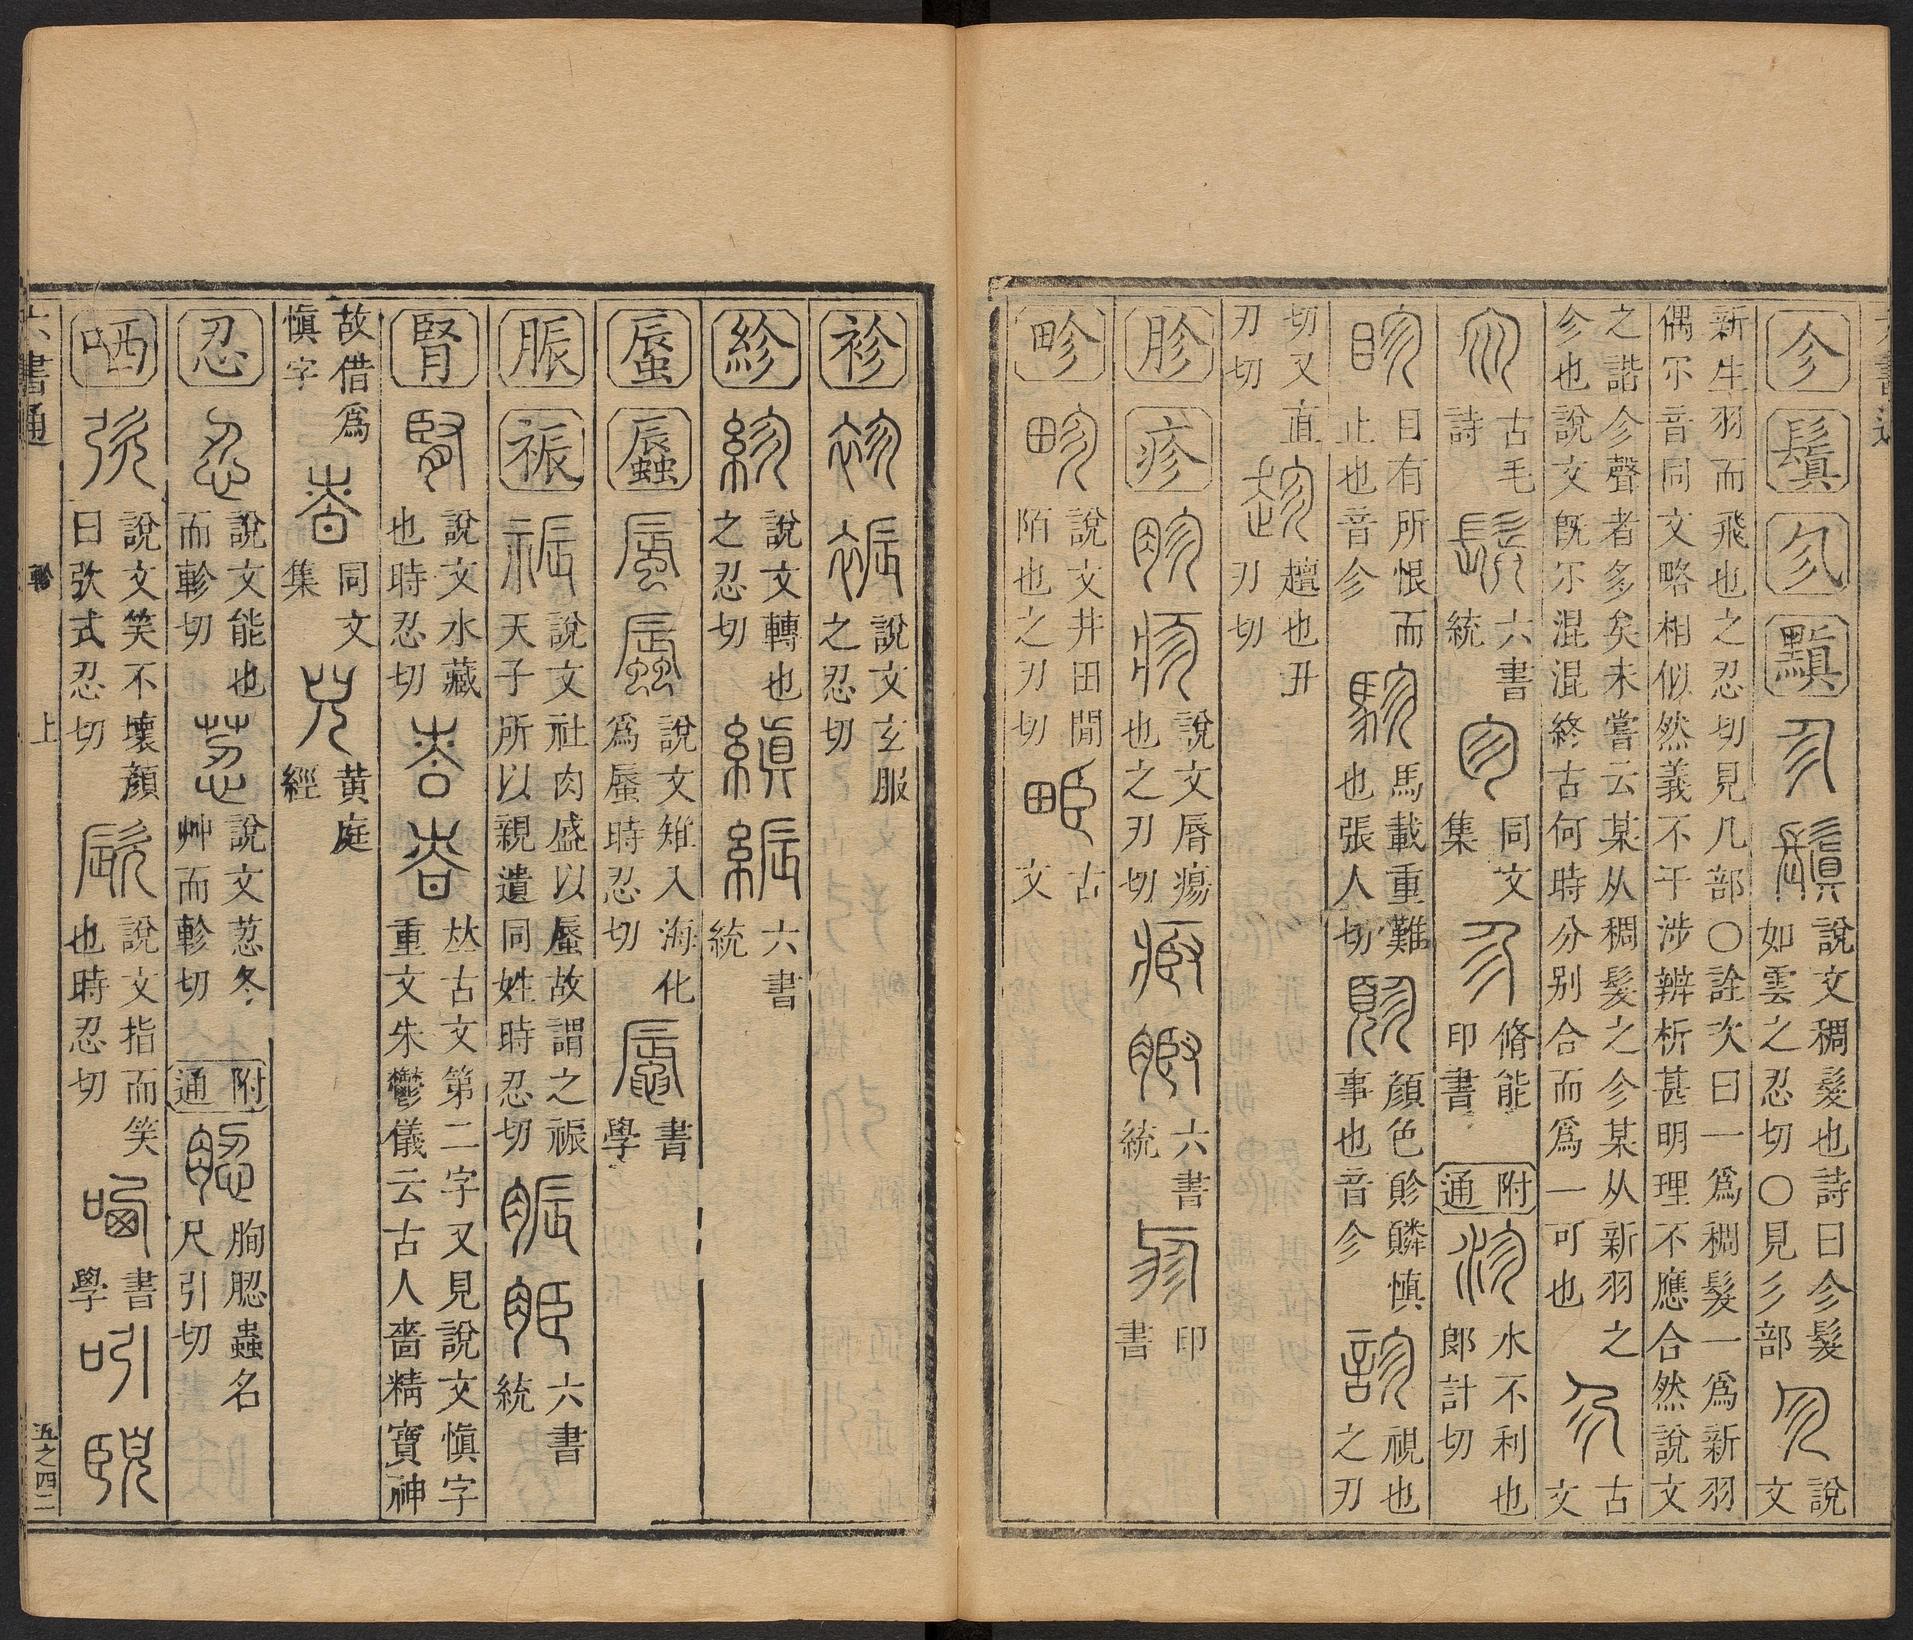 六書通
㐱 鬒 㐱 黰 說文稠髮也詩曰㐱髮如雲之忍切○見彡部 說文
新生羽而飛也之忍切見几部○詮次曰一爲稠髮一爲新羽偶尒音同文略相似然義不干涉辨析甚明理不應合然說文
之諧㐱聲者多矣未嘗云某从稠髮之㐱某从新羽之㐱也說文旣尒混混終古何時分别合而爲一可也 古文
古毛詩 六書統 同文集 脩能印書 附通 水不利也郎計切
目有所恨而止也音㐱 馬載重難也張人切 顏色㐱䫰慎事也音㐱 視也之刃
切又直刃切 䞴也丑刃切
胗 疹 說文脣瘍也之刃切 六書統 印書
畛 說文井田閒陌也之刃切 古文
袗 說文玄服之忍切
紾 說文轉也之忍切 六書統
蜃 蜄 說文雉入海化爲蜃時忍切 書學
脤 祳 說文社肉盛以蜃故謂之祳天子所以親遺同姓時忍切 六書統
腎 說文水藏也時忍切 𠀤古文第二字又見說文愼字重文朱鬱儀云古人嗇精寶神
故借爲愼字 同文集 黄庭經
忍 說文能也而軫切 說文荵冬艸而軫切 附通 朐䏰蟲名尺引切
哂 說文笑不壞顏曰弞式忍切 說文指而笑也時忍切 書學
六書通 軫 上 五之四二